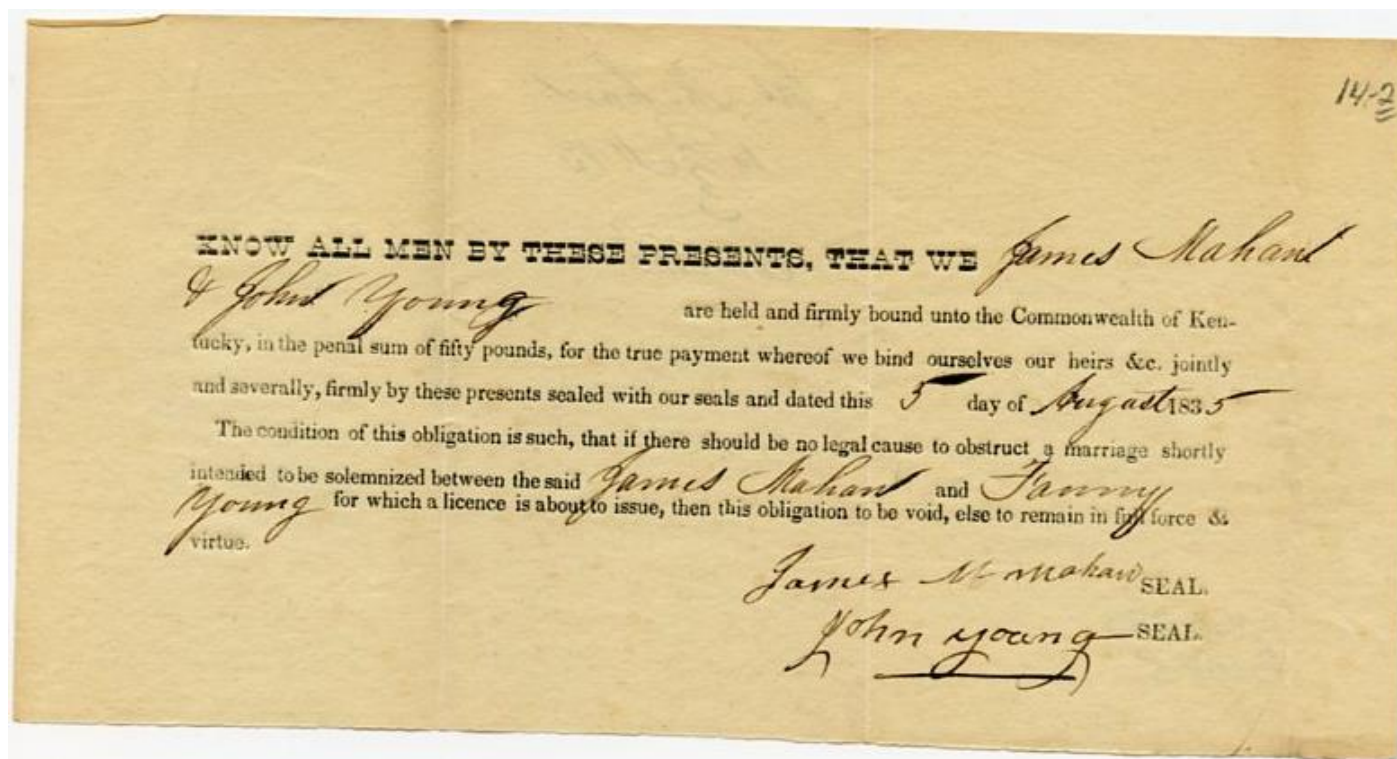 14-2
KNOW ALL MEN BY THESE PRESENTS, THAT WE James Mahan
& John Young are held and firmly bound unto the Commonwealth of Ken-
tucky, in the penal sum of fifty pounds, for the true payment whereof we bind ourselves our heirs &c. jointly
and severally, firmly by these presents sealed with our seals and dated this 5 day of August 1835
The condition of this obligation is such, that if there should be no legal cause to obstruct a marriage shortly
intended to be solemnized between the said James Mahan and Fanny
Young for which a licence is about to issue, then this obligation to be void, else to remain in full force &
virtue.
James M Mahan SEAL.
John Young SEAL.